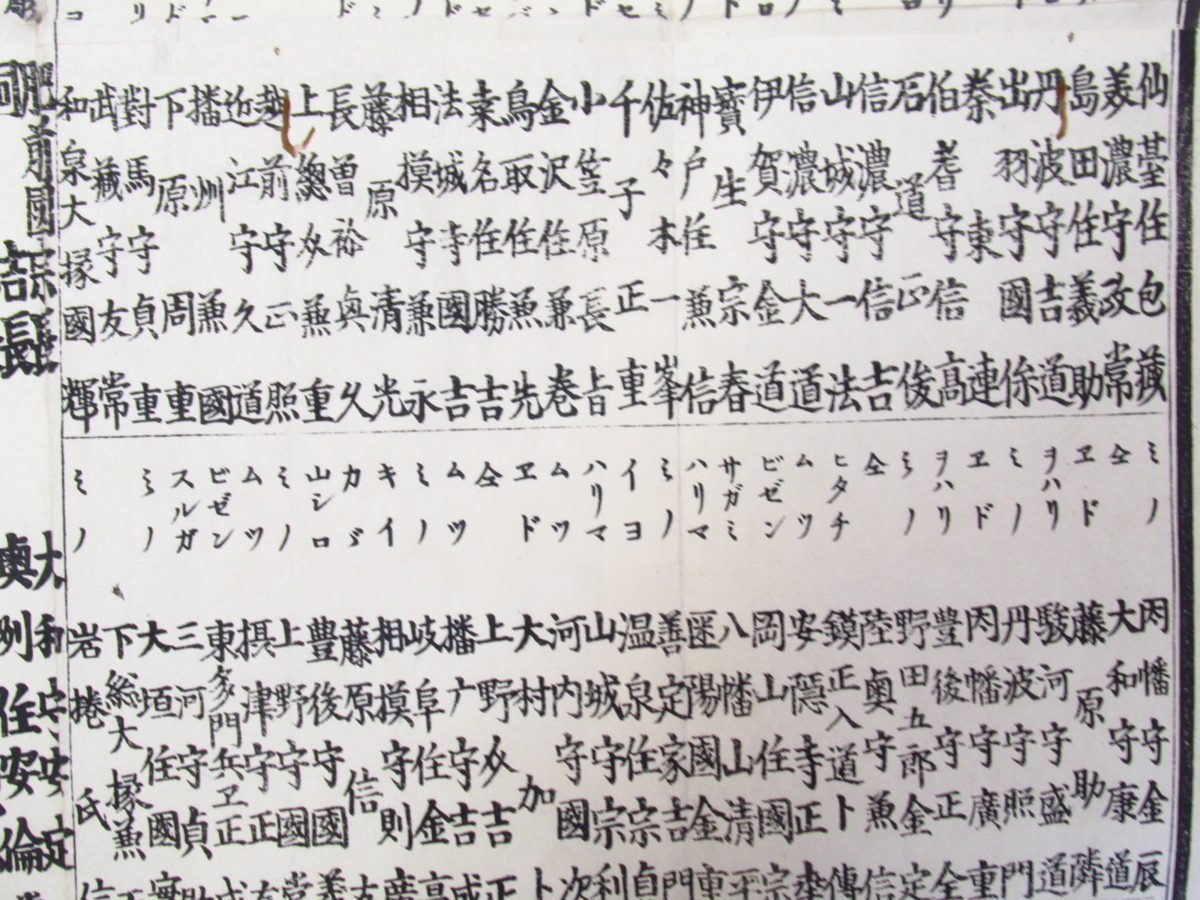 仙臺住包蔵
美濃守政常
島田住義助
丹波守吉道
出羽守國
秦東連
伯耆守信高
石道正俊
信濃守信吉
山城守一法
信濃守大道
伊賀守金道
寳生宗春
神戸住兼信
佐々木一峯
千子正重
小笠原長旨
金沢住兼巻
鳥取住兼先
桒名住勝吉
法城寺國吉
相摸守兼永
藤原清光
長曽久
上總介兼重
越前守正照
近江守久道
播州兼國
下原周重
對馬守貞重
武蔵守友常
和泉大掾國輝
肥前國宗長
同吉長
ミノ 因幡守金辰
仝 大和守康道
ヱド 藤原助隣
ヲハリ 駿河守盛道
ミノ 丹波守照門
ヱド 因幡守廣重
ヲハリ 豊後守正全
ミノ 野田五郎金定
仝 陸奥守兼信
ヒタチ 鏌正入道卜傳
ムツ 安隠寺正桒
ビゼン 岡山住國宗
サガミ 八幡山清平
ハリマ 陽國金重
ミノ 善定家吉門
イヨ 温泉住宗貞
ハリマ 山城守宗利
ムツ 河内守國次
ヱド 大村加卜
仝 上野介吉正
ムツ 播广守吉成
ミノ 岐阜住金高
キイ 相摸守則廣
カゞ 藤原信友
山シロ 豊後守國義
ミノ 上野守國常
ムツ 摂津守正友
ビゼン 東多門兵ヱ正成
スルガ 三河守貞助
ミノ 大垣住國實
下総大掾兼正
ミノ 岩捲氏信
大和安定
奥州住安倫